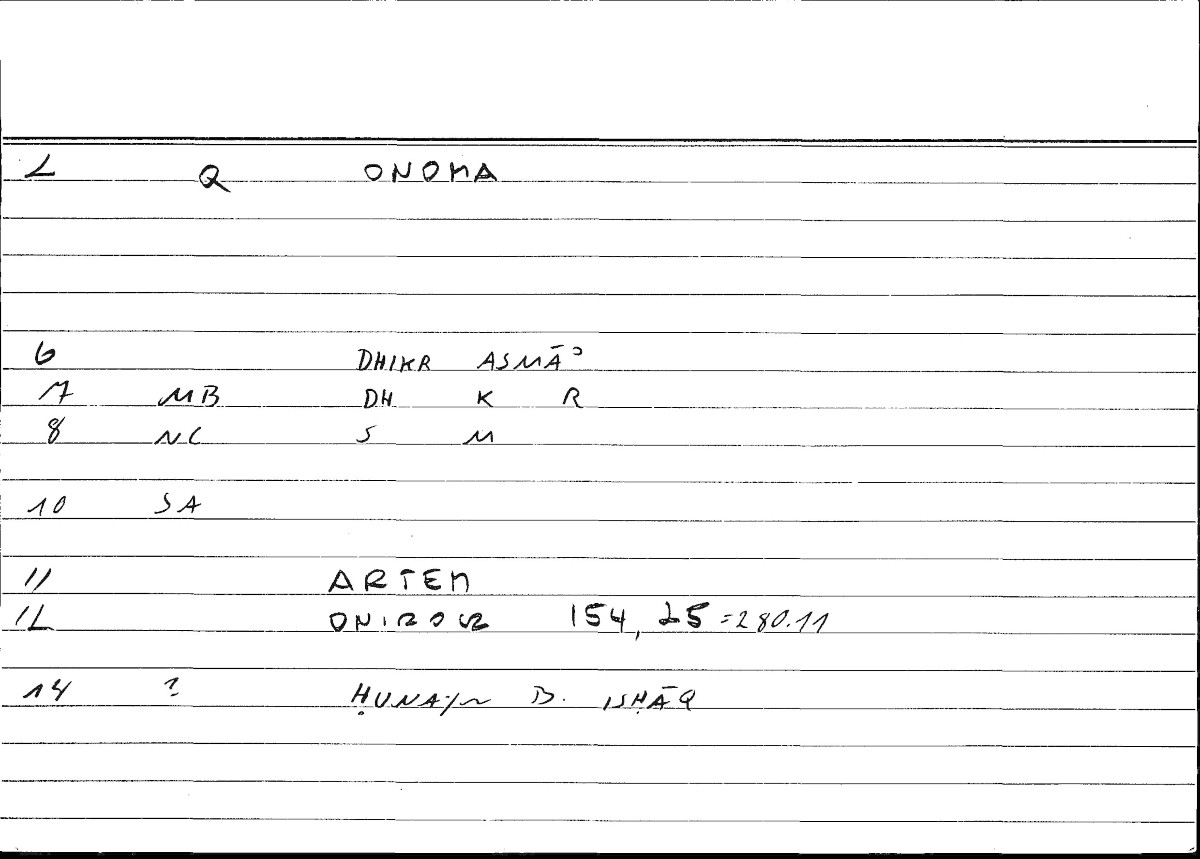 2 Q ONOMA
6 DHIKR ASMĀʾ
7 MB DH K R
8 NC S M
10 SA
11 ARTEM
12 ONIROCR 154, 25 =280.11
14 ? ḤUNAYN B. ISḤĀQ